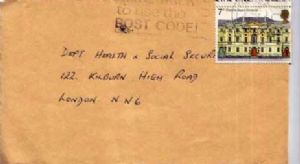 to use the
POST CODE!
7p
DEPT HEALTH & SOCIAL SECURI
122. KILBURN HIGH ROAD
LONDON. N.W6